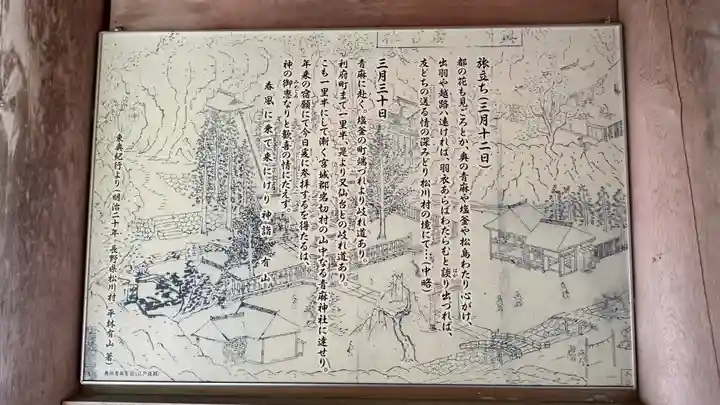 旅立ち(三月十二日)
都の花も見ごろとか、奥の青麻や塩釜や松島わたり心がけ、
出羽や越路ハ遠ければ、羽衣あらばわたらむと談り出づれば、
友どちの送る情の深みどり松川村の境にて…(中略)
三月三十日
青麻に赴く、塩釜の町端づれより岐れ道あり。
利府町まで一里半、是より又仙台との岐れ道あり。
こも一里半にして漸く宮城郡岩切村の山中なる青麻神社に達せり。
年来の宿願にて今日爰に参拝するを得たるは、
神の御恵なりと歓喜の情にたえず。
みめぐみ
春風に乗て来にけり神詣 有山
東奥紀行より(明治二十年 長野県松川村 平林有山 著)